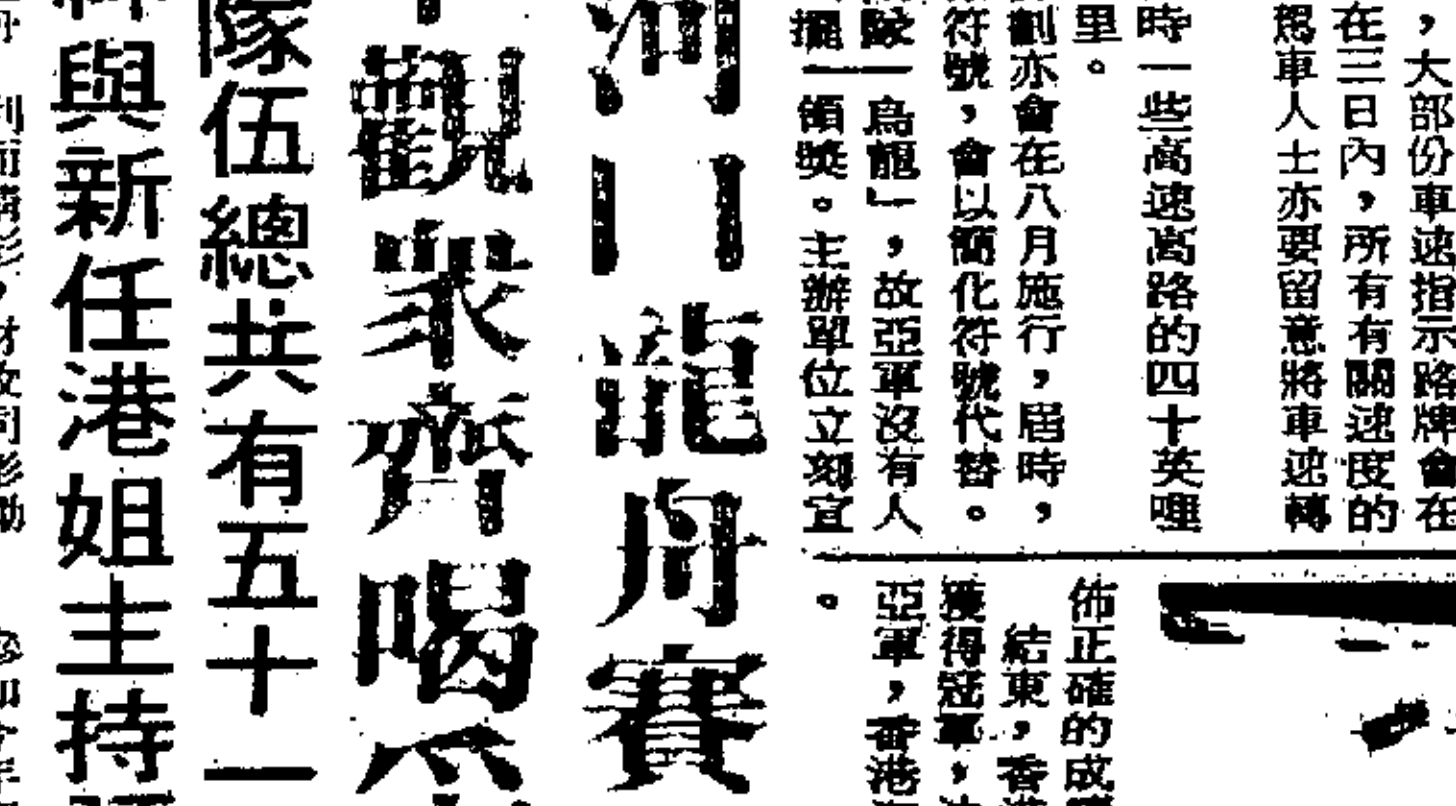 ，大部份車速指示路牌會在
在三日內，所有有關速度的
駕車人士亦要留意將車速轉
時一些高速高路的四十英哩
里。
劃亦會在八月施行，屆時，
符號，會以簡化符號代替。
隊一烏龍」，故亞軍沒有人
擺一領獎。主辦單位立刻宣
佈正確的成
結束，香港
獲得冠軍，
亞軍，香港
。
河口龍舟賽
觀衆齊喝
隊伍總共有五十一
與新任港姐主持